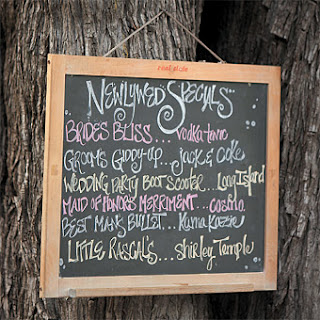 Newlywed Specials...
Brides Bliss... vodka tonic
Groom's Giddy-up... Jack & Coke
Wedding Party Boot Scooter... Long Island
Maid of Honor's Merriment... cosmo
Best Man's Bullet... Kama Kazie
Little Rascals... Shirley Temple